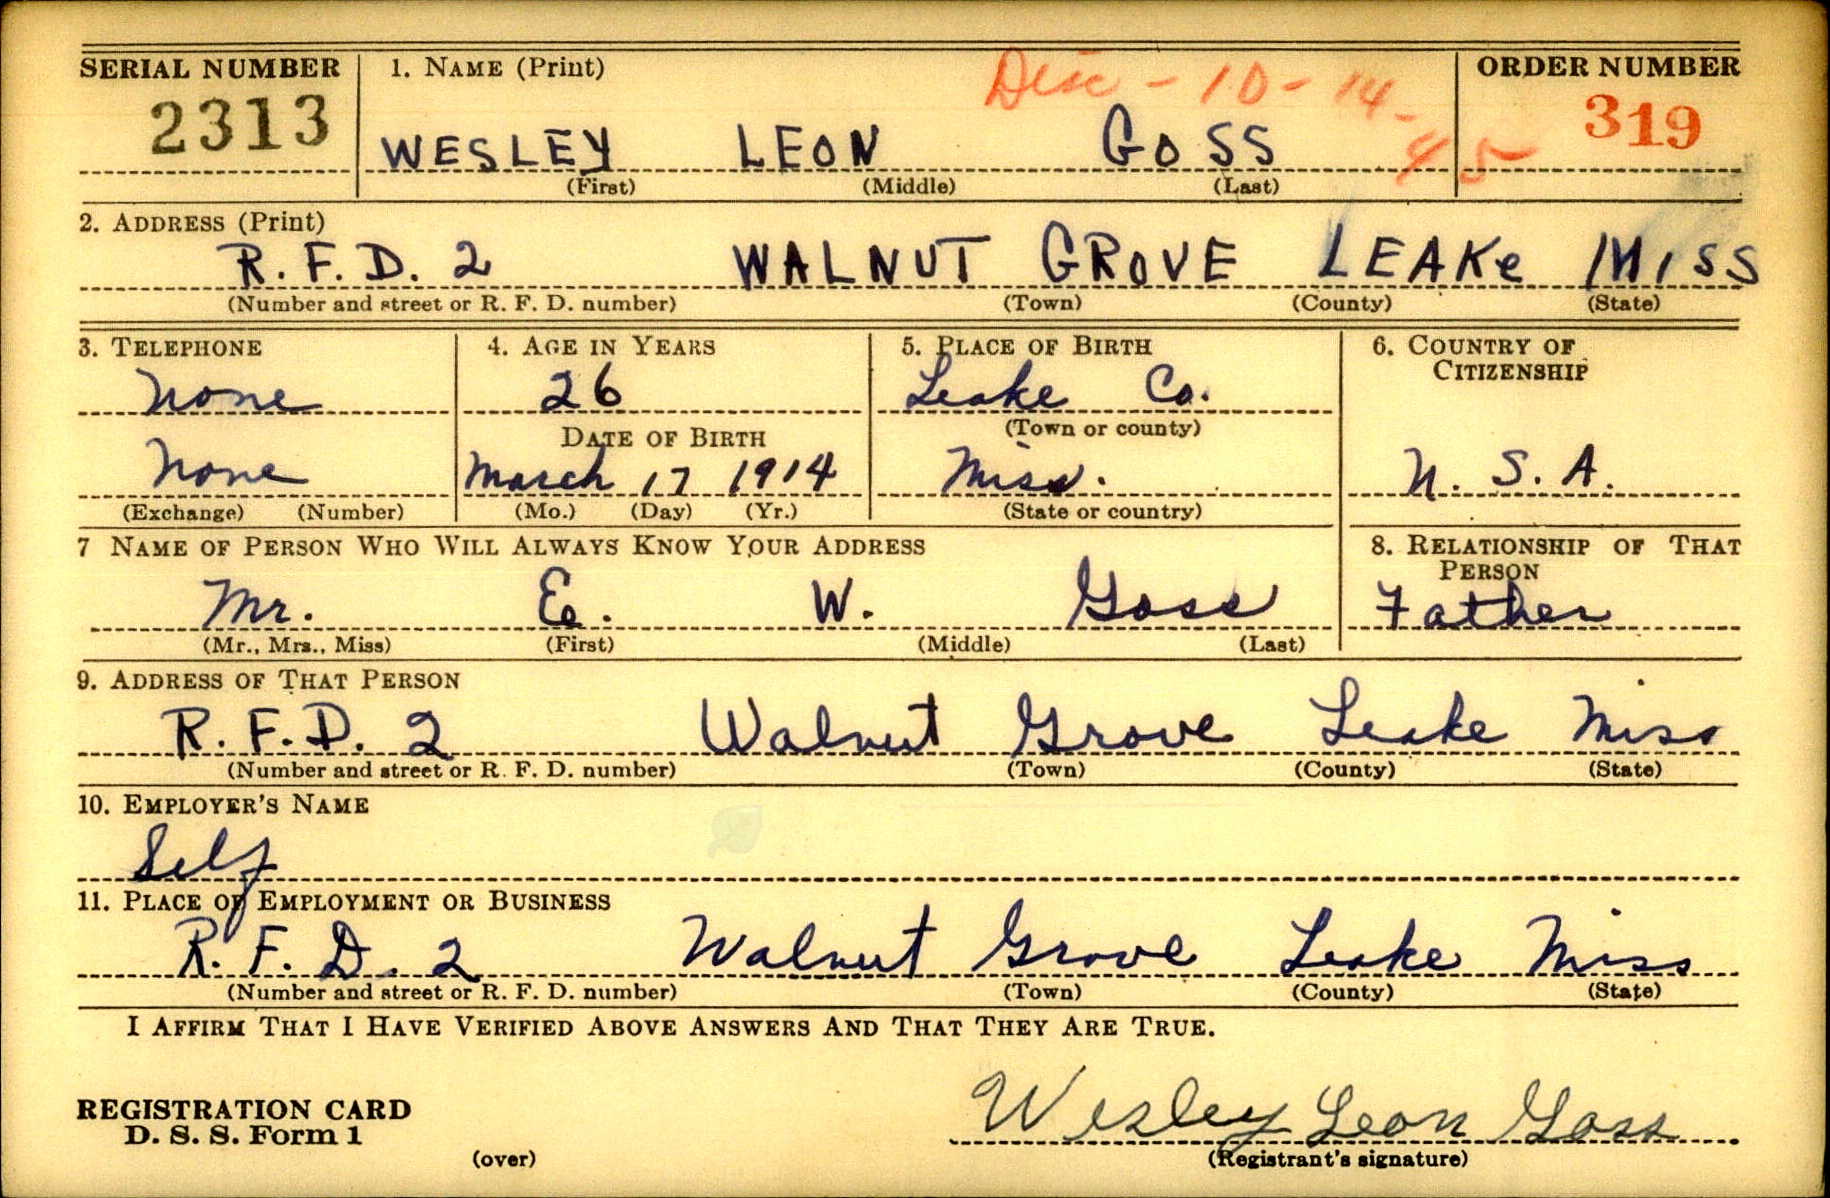 SERIAL NUMBER 1. NAME (Print) Disc - 10 - 14 - 45 ORDER NUMBER
2313 WESLEY LEON GOSS 319
(First) (Middle) (Last)
2. ADDRESS (Print)
R. F. D. 2 WALNUT GROVE LEAKE MISS
(Number and street or R. F. D. number) (Town) (County) (State)
3. TELEPHONE 4. AGE IN YEARS 5. PLACE OF BIRTH 6. COUNTRY OF
CITIZENSHIP
None 26 Leake Co.
DATE OF BIRTH (Town or county)
None March 17 1914 Miss. U. S. A.
(Exchange) (Number) (Mo.) (Day) (Yr.) (State or country)
7 NAME OF PERSON WHO WILL ALWAYS KNOW YOUR ADDRESS 8. RELATIONSHIP OF THAT
PERSON
Mr. E. W. Goss Father
(Mr., Mrs., Miss) (First) (Middle) (Last)
9. ADDRESS OF THAT PERSON
R. F. D. 2 Walnut Grove Leake Miss
(Number and street or R. F. D. number) (Town) (County) (State)
10. EMPLOYER'S NAME
Self
11. PLACE OF EMPLOYMENT OR BUSINESS
R. F. D. 2 Walnut Grove Leake Miss
(Number and street or R. F. D. number) (Town) (County) (State)
I AFFIRM THAT I HAVE VERIFIED ABOVE ANSWERS AND THAT THEY ARE TRUE.
REGISTRATION CARD Wesley Leon Goss
D. S. S. Form 1
(over) (Registrant's signature)